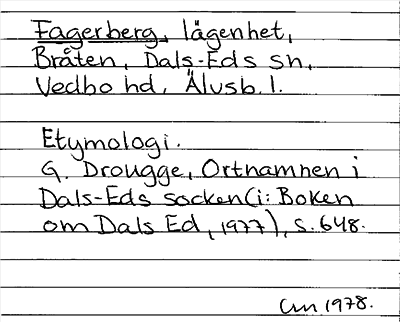 Fagerberg, lägenhet,
Bråten, Dals-Eds sn,
Vedbo hd, Älvsb. l.
Etymologi.
G. Drougge, Ortnamnen i
Dals-Eds socken (i: Boken
om Dals Ed, 1977), s. 648.
1978.